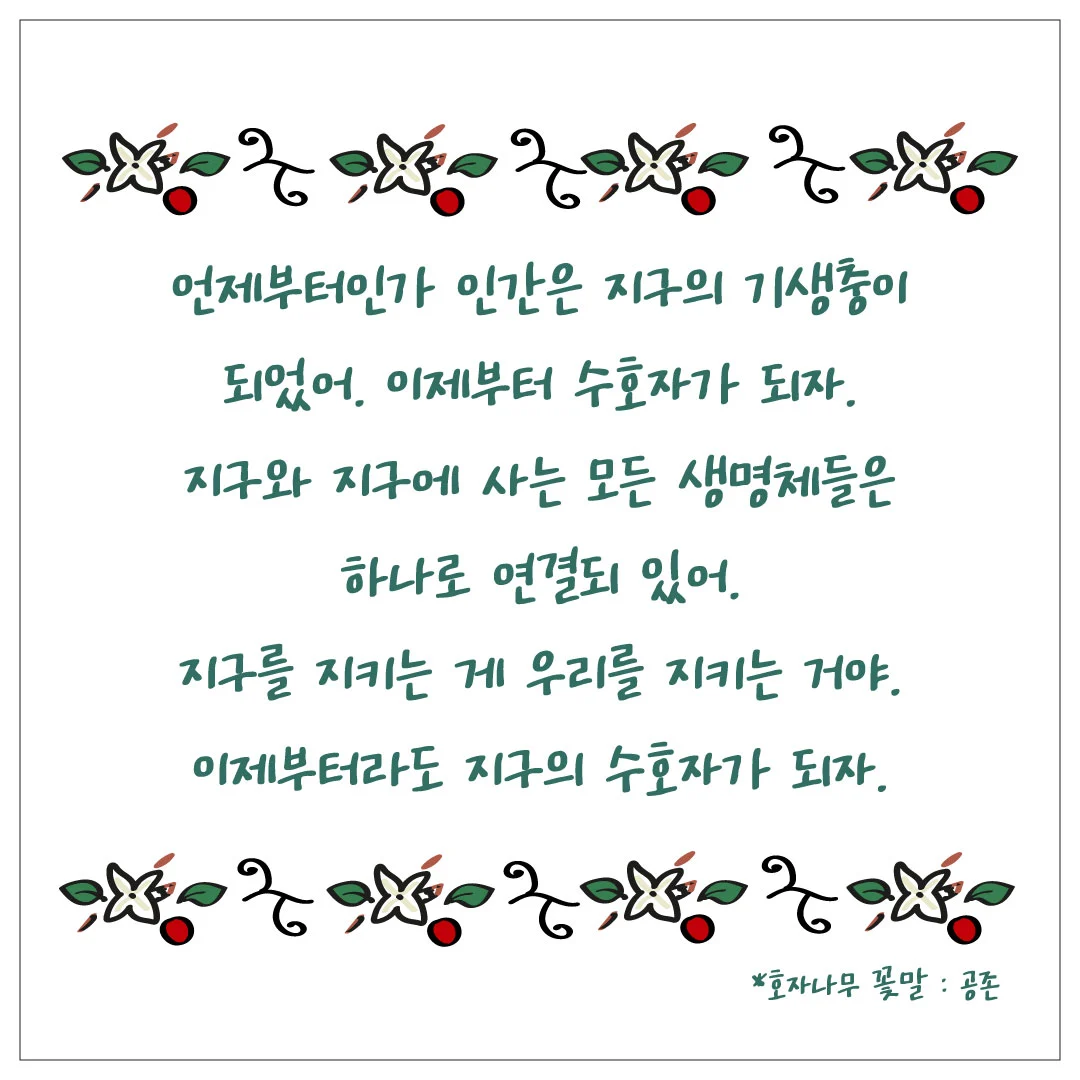 언제부터인가 인간은 지구의 기생충이
되었어. 이제부터 수호자가 되자.
지구와 지구에 사는 모든 생명체들은
하나로 연결되 있어.
지구를 지키는 게 우리를 지키는 거야.
이제부터라도 지구의 수호자가 되자.
*호자나무 꽃말 : 공존